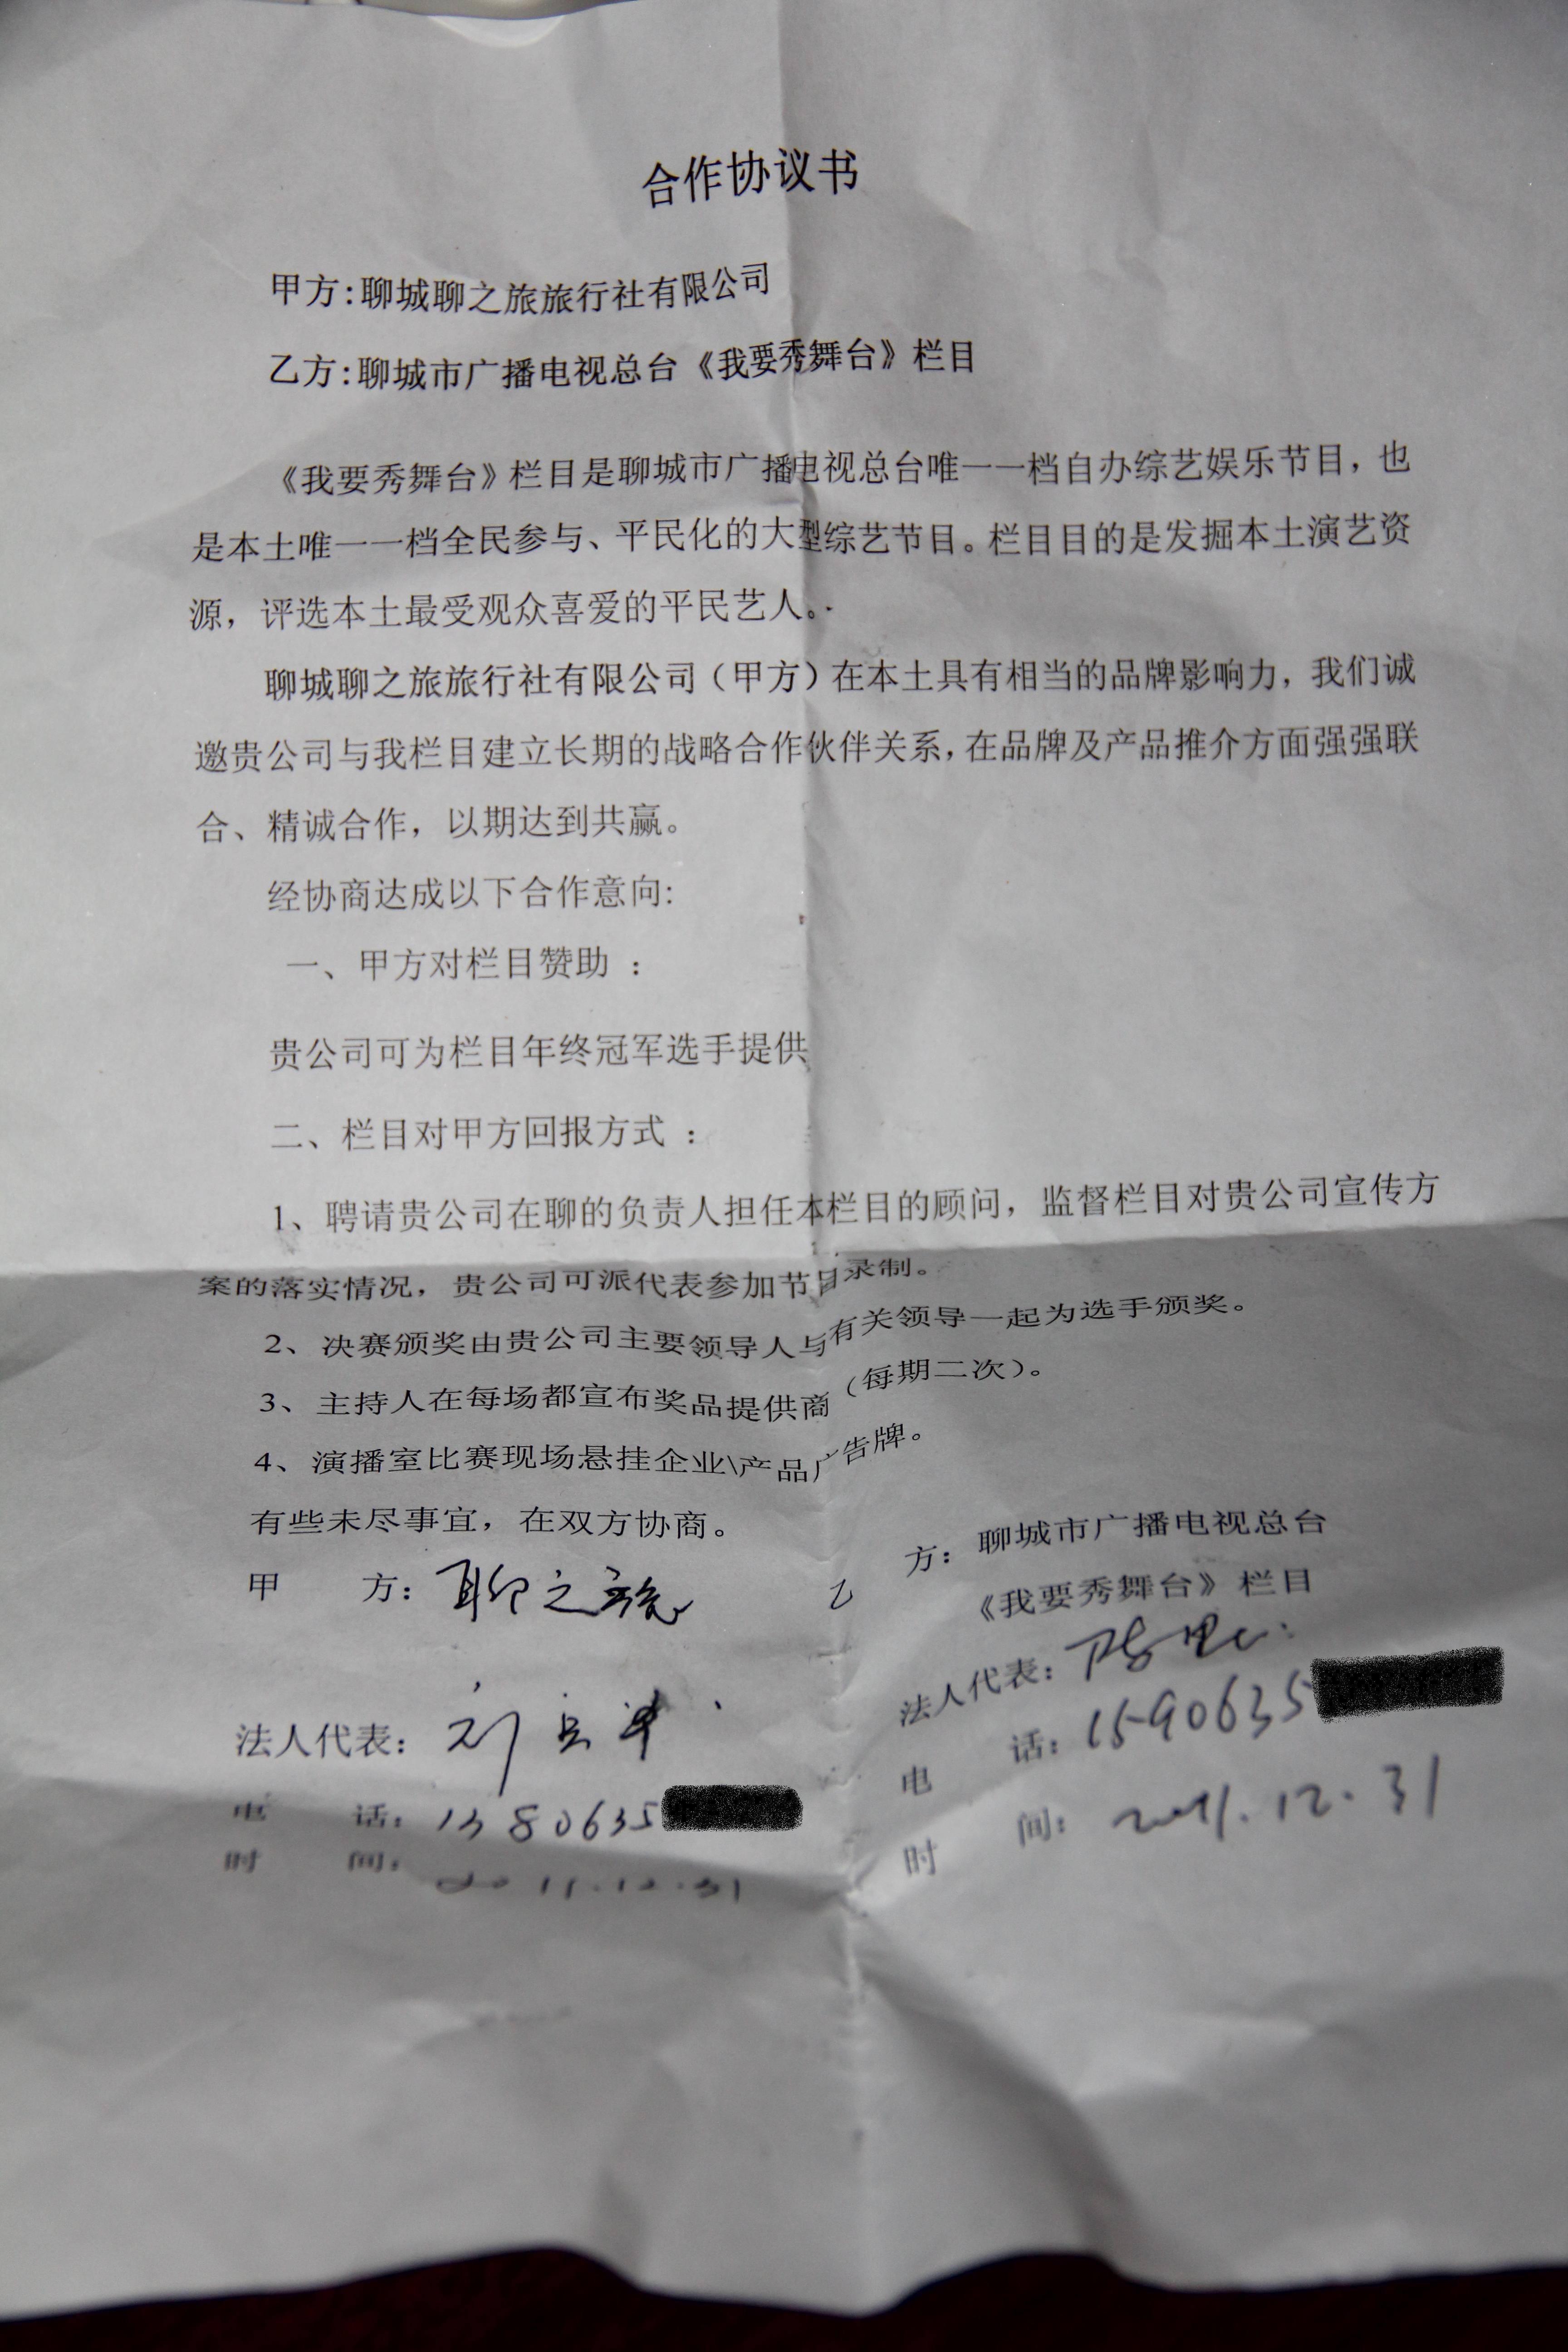 合作协议书
甲方:聊城聊之旅旅行社有限公司
乙方:聊城市广播电视总台《我要秀舞台》栏目
《我要秀舞台》栏目是聊城市广播电视总台唯一一档自办综艺娱乐节目，也
是本土唯一一档全民参与、平民化的大型综艺节目。栏目目的是发掘本土演艺资
源，评选本土最受观众喜爱的平民艺人。
聊城聊之旅旅行社有限公司（甲方）在本土具有相当的品牌影响力，我们诚
邀贵公司与我栏目建立长期的战略合作伙伴关系，在品牌及产品推介方面强强联
合、精诚合作，以期达到共赢。
经协商达成以下合作意向:
一、甲方对栏目赞助 ：
贵公司可为栏目年终冠军选手提供
二、栏目对甲方回报方式 ：
1、聘请贵公司在聊的负责人担任本栏目的顾问，监督栏目对贵公司宣传方
案的落实情况，贵公司可派代表参加节目录制。
2、决赛颁奖由贵公司主要领导人与有关领导一起为选手颁奖。
3、主持人在每场都宣布奖品提供商（每期二次）。
4、演播室比赛现场悬挂企业\产品广告牌。
有些未尽事宜，在双方协商。
甲 方：聊之旅
法人代表：刘
电 话：1380635
时 间：2011.12.31
乙 方：聊城市广播电视总台
《我要秀舞台》栏目
法人代表：
电 话：1590635
时 间：2011.12.31